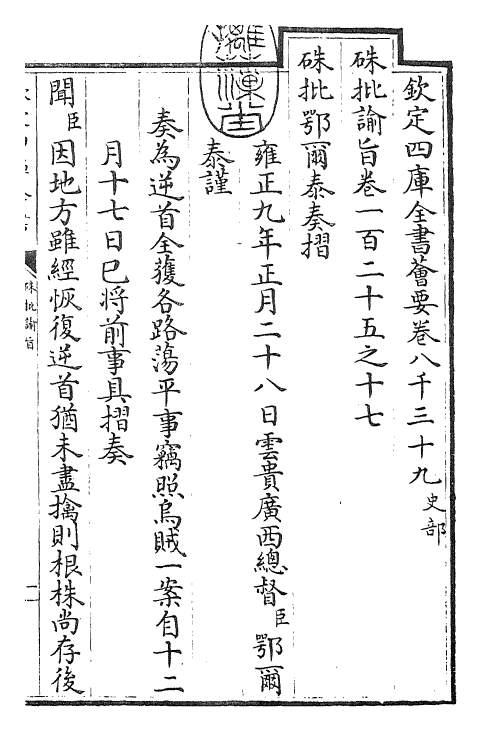 欽定四庫全書薈要卷八千三十九史部
硃批諭旨卷一百二十五之十七
硃批鄂爾泰奏摺
雍正九年正月二十八日雲貴廣西總督臣鄂爾
泰謹
奏為逆首全獲各路蕩平事竊照烏賊一案自十二
月十七日巳將前事具摺奏
聞臣因地方雖經恢復逆首猶未盡擒則根株尚存後
硃批諭旨